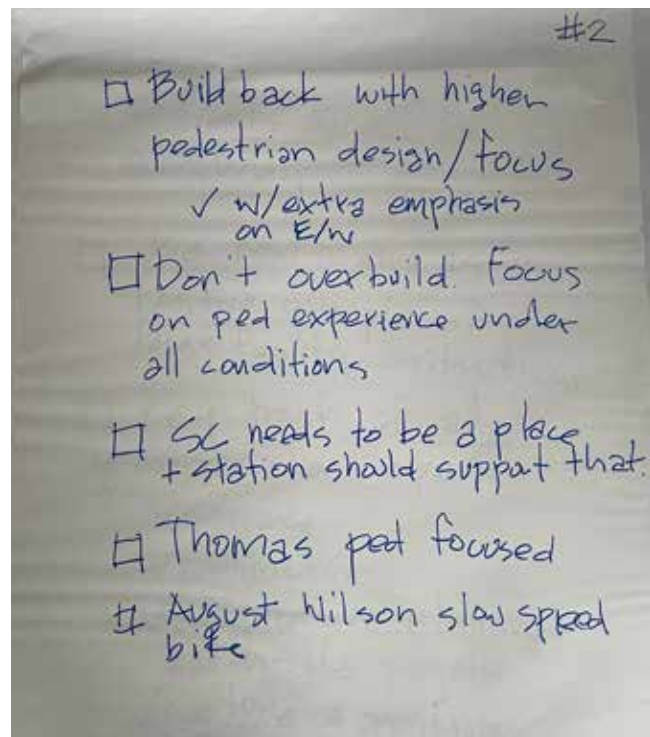 #2
□ Build back with higher
pedestrian design/focus
✓ w/extra emphasis
on E/W
□ Don't overbuild. Focus
on ped experience under
all conditions
□ SC needs to be a place
+ station should support that.
□ Thomas ped focused
□ August Wilson slow speed
bike